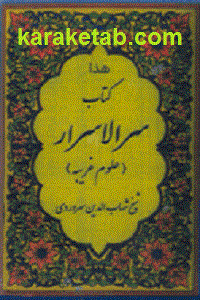 karaketab.com
هذا
کتاب
سرالاسرار
(علوم غریبه)
شیخ شهاب الدین سهروردی